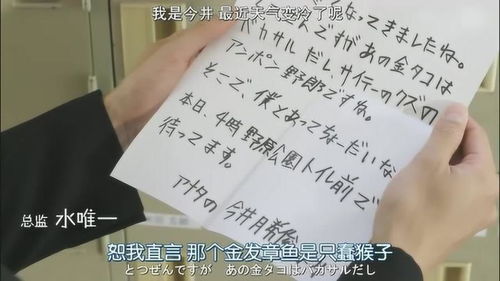 我是今井 最近天气变冷了呢
なってきましたね。
ですがあの金タコは
バカサルだし、サイテーのクズの
アンポン野郎ですね。
そこで、僕とあってちょーだいな
本日、4時野原公園トイレ前で
待ってます。
アナタの 今井
总监 水唯一
恕我直言 那个金发章鱼是只蠢猴子
とつぜんですが あの金タコはバカサルだし